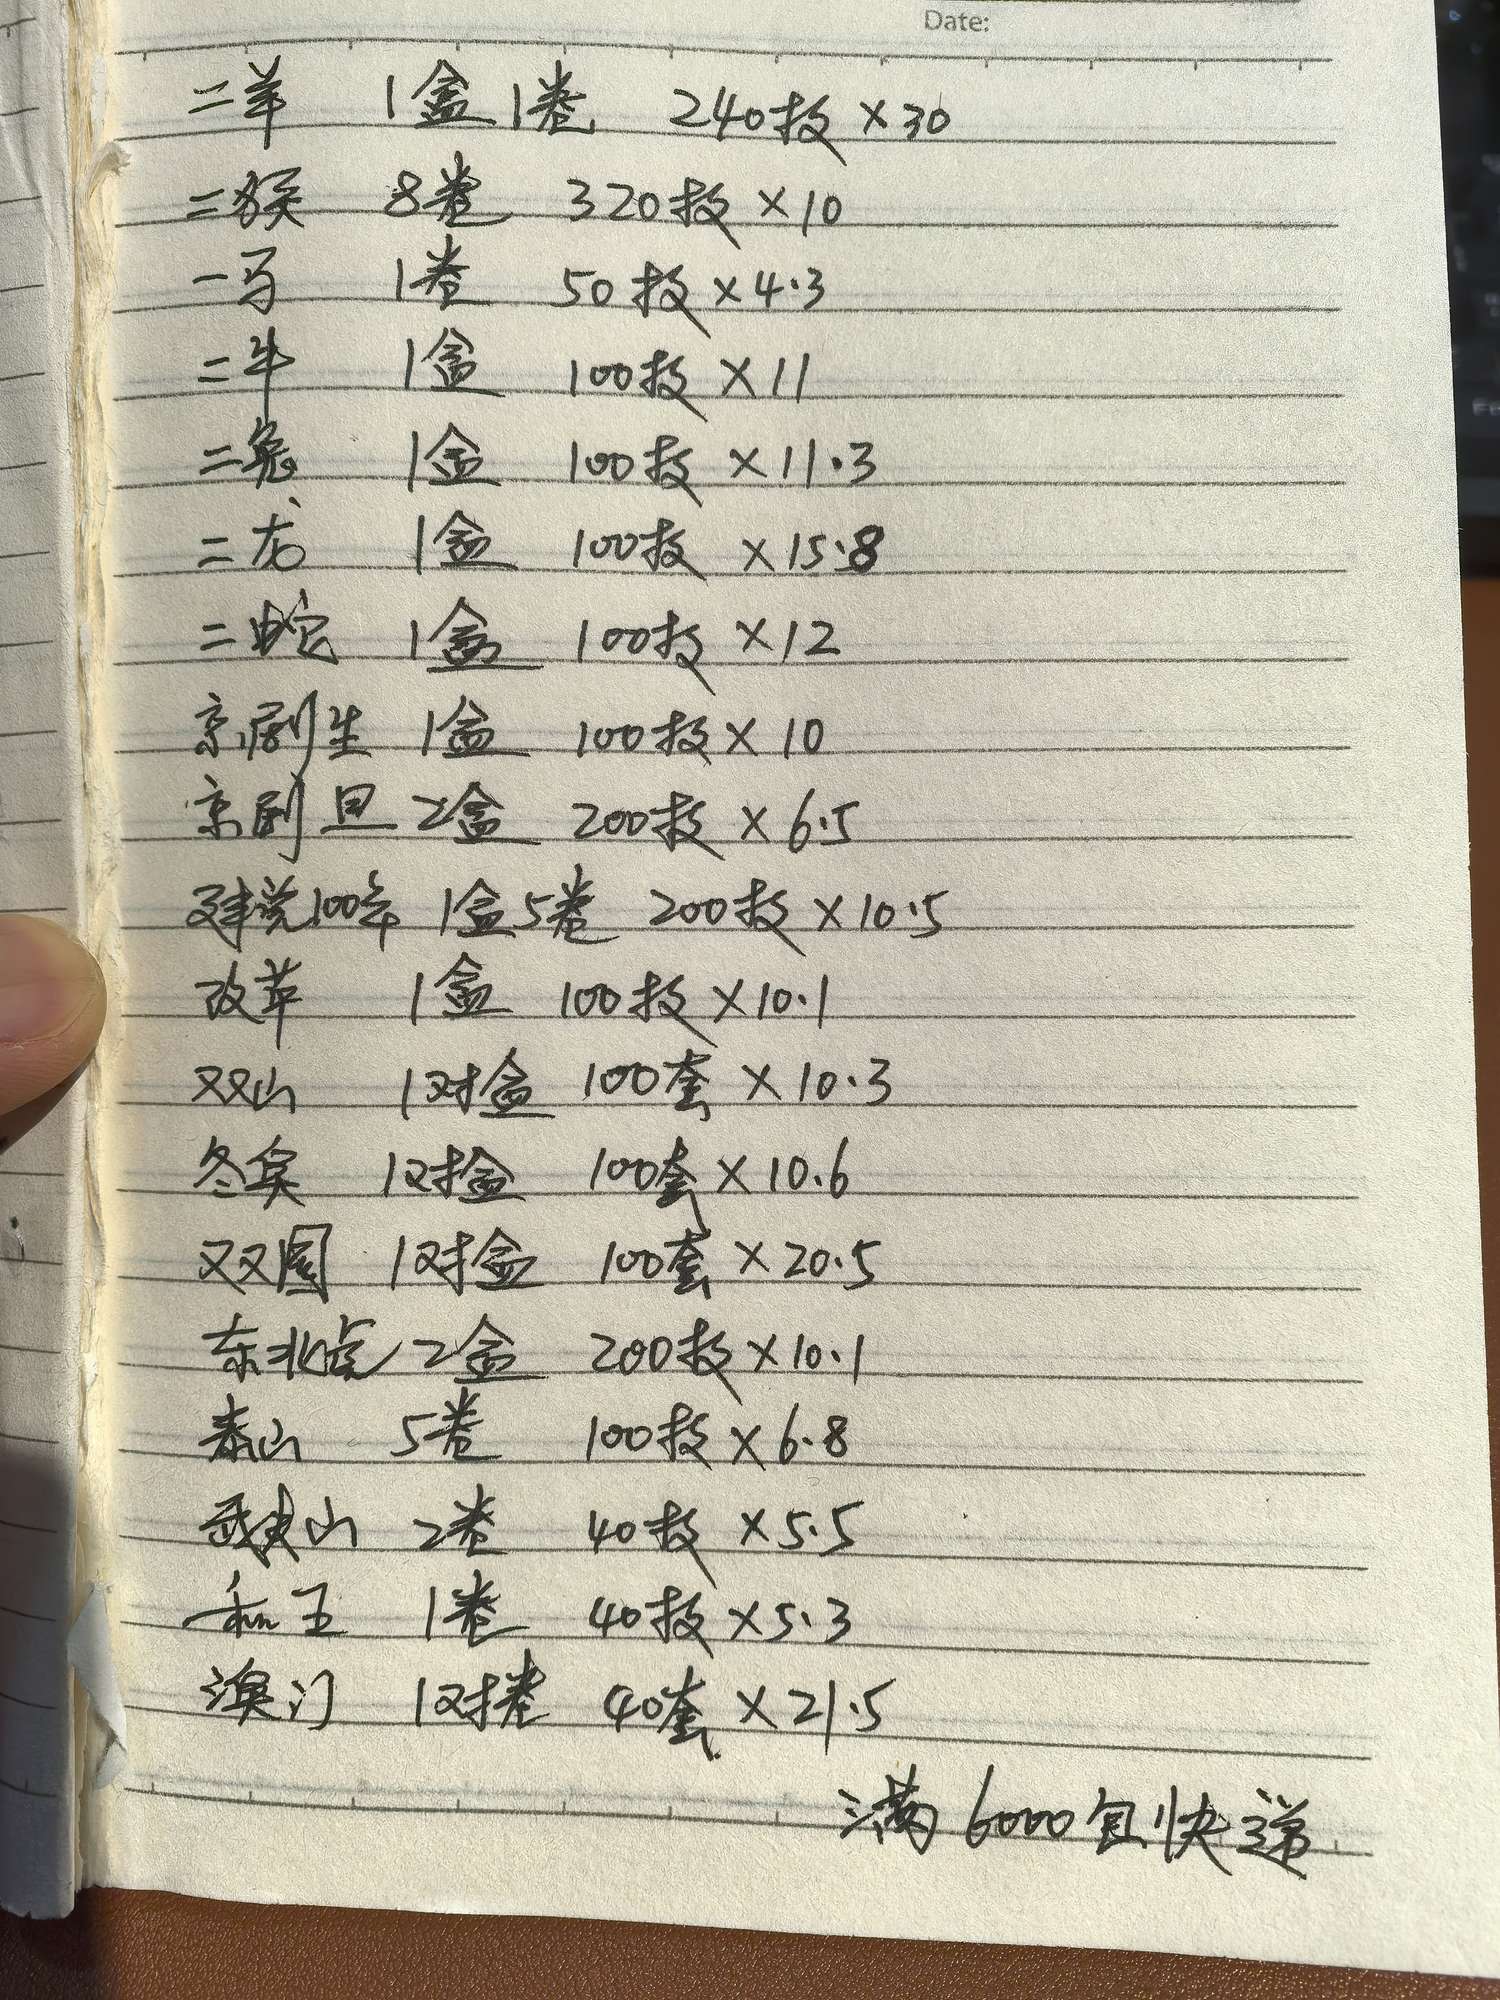 Date:
二羊 1盒1卷 240枚×30
二猴 8卷 320枚×10
一马 1卷 50枚×4.3
二牛 1盒 100枚×11
二兔 1盒 100枚×11.3
二龙 1盒 100枚×15.8
二蛇 1盒 100枚×12
京剧生 1盒 100枚×10
京剧旦 2盒 200枚×6.5
建党100年 1盒5卷 200枚×10.5
改革 1盒 100枚×10.1
双山 1对盒 100套×10.3
冬奥 1对盒 100套×10.6
双国 1对盒 100套×20.5
东北虎 2盒 200枚×10.1
泰山 5卷 100枚×6.8
武夷山 2卷 40枚×5.5
和五 1卷 40枚×5.3
澳门 1对卷 40套×21.5
满6000包快递